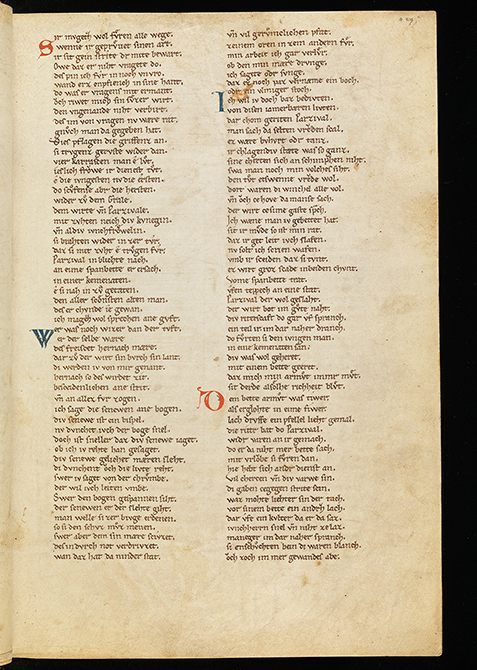 Sir mvgetz wol fvren alle wege.
swenne ir geprvvet sinen art.
ir sit gein strite dr mite bewart.
Owe daz er niht vragete do.
des pin ich fvr in noch vnvro.
wand erz enpfienech in sine hant.
do was er vragens mit ermant.
och riwet mich sin svzer wirt.
den vngenande niht verbirt.
des im von vragen nv ware rat.
gnvch man da gegeben hat.
dies pflagen die griffenz an.
si trvgenz gervste wider dan.
vier karraschen man e lvt.
ieslich frowe ir dienest tvt.
e die ivngesten nv die ersten.
do schvfense abr die hersten.
wider zv dem grale.
dem wirte vn̄ Parzivale.
mit zvhten neich div kvnegin.
vn̄ al div ivnchfrowelin.
si brahten wider in zer tvr.
daz si mit zvht e trvgen fvr.
Parzival in blichte nach.
an eime spanbette er ersach.
in einer kemenaten.
e si nah in zv getaten.
den aller schonsten alten man.
des er chvnde ie gewan.
ich magez wol sprechen ane gvft.
er was noch grizer dan der tvft.
Wer der selbe ware
des freischet hernach mare.
dar zv der wirt sin bvrch sin lant.
div werdent iv von mir genant.
hernach so des wirdet zit.
bescheidenlichen ane strit.
vn̄ an allez fvr zogen.
ich sage die senewen ane bogen.
div senewe ist ein bispel.
nv dvnchet ivch der boge snel.
doch ist sneller daz div senewe iaget.
ob ich iv rehte han gesaget.
div senewe gelichet mæren sleht.
di dvnchent och die livte reht.
swer iv saget von der chrvmbe.
der wil ivch leiten vmbe.
Swer den bogen gespannen siht.
der senewen er der slehte giht.
man welle si zer bivge erdenen.
so si den schvz mvz menen.
swer aber dem sin mære scivzet.
des indvrch not verdrivzet.
wan daz hat da ninder stat.
vn̄ vil gervmeclichen pfat.
zeinem oren in zem andern fvr.
min arbeit ich gar verlvr.
ob den min mære drvnge.
ich sagete oder svnge.
daz ez noch paz vernæme ein boch.
oder ein vlmiger stoch.
Ich wil iv doch baz bedivten.
von disen iamerbæren livten.
dar chom geriten Parzival.
man sach da selten vrœden scal.
ez wære bvhvrt oder tanz.
ir chlagendiv stæte was so ganz.
sine cherten sich an schimphen niht.
swa man noch min volches siht.
den tvt etswenne vrœde wol.
dort waren di winchel alle vol.
vn̄ och ce hove da mans sach.
der wirt ce sime gaste sprach.
ich wæne man iv gebettet hat.
sit ir mvde so ist min rat.
daz ir get leit ivch slafen.
nv solt ich scrien wafen.
vmb ir sceiden daz si tvnt.
ez wirt groz scade in beiden chvnt.
vome spanbette trat.
vfen teppech an eine stat.
Parzival der wol geslaht.
der wirt bot im gvte naht.
div riterschaft do gar vf spranch.
ein teil ir im dar naher dranch.
do fvrten si den ivngen man.
in eine kemenaten san.
div was wol geheret.
mit einem bette geeret.
daz mich min armvt immer mvt.
sit div erde alsolhe richheit blvt.
Dem bette armvt was tiwer.
als erglohte in eime fiwer.
lach drvffe ein pfellel lieht gemal.
die ritr bat do Parzival.
widr varen an ir gemach.
do er da niht mer bette sach.
mit vrlobe si fvren dan.
hie hebt sich andr dienst an.
vil cherzen vn̄ div varwe sin.
di gaben cegegen strite scin.
waz mohte liehter sin der tach.
vor sinem bette ein andrz lach.
dar vfe ein kvlter da er da saz.
ivncherren snel vn̄ niht ze laz.
maneger im dar naher spranch.
si enschvchten bein di waren blanch.
och zoch im mer gewandes abe.